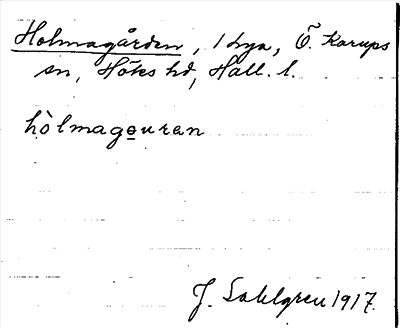 Holmagården, 1 hya, Ö. Karups
sn, Höks hd, Hall. l.
hòlmagọuran
J. Sahlgren 1917.